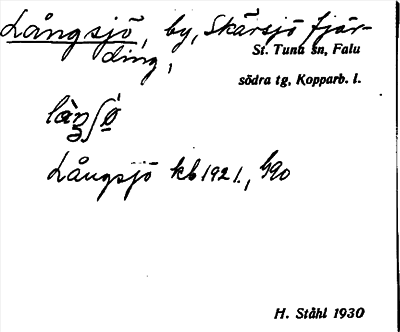 Långsjö, by, Skärsjö fjär-
ding,
St. Tuna sn, Falu
södra tg, Kopparb. l.
Långsjö kb 1921.,
H. Ståhl 1930